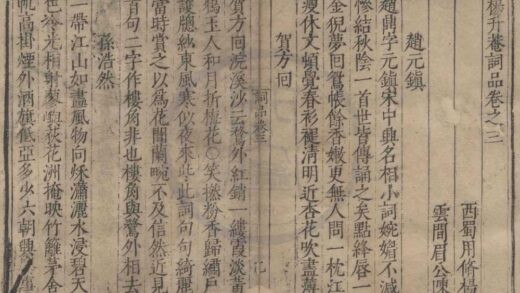 楊升菴詞品卷之三
西蜀用脩楊
雲間眉公陳
趙元鎮
趙鼎字元鎮宋中興名相小詞婉媚不減
慘結秋陰一首世皆傳誦之矣點絳唇一
金猊夢回鴛帳餘香嫩更無人問一枕江
瘦休文頓覺春衫褪清明近杏花吹盡薄
賀方回
詞品卷三
賀方回浣溪沙云鶩外紅銷一縷霞淡黃
楊玉人和月折梅花○笑撚粉香歸繡戶
護牕紗東風寒似夜來些此詞句句綺麗
當時賞之以為花間蘭畹不及信然近見
首句二字作樓角非也樓角與鶩外相去
孫浩然
一帶江山如畫風物向秌瀟灑水浸碧天
冷光相射蓼嶼荻花洲掩映竹籬茅舍
帆高掛煙外酒旗低亞多少六朝興